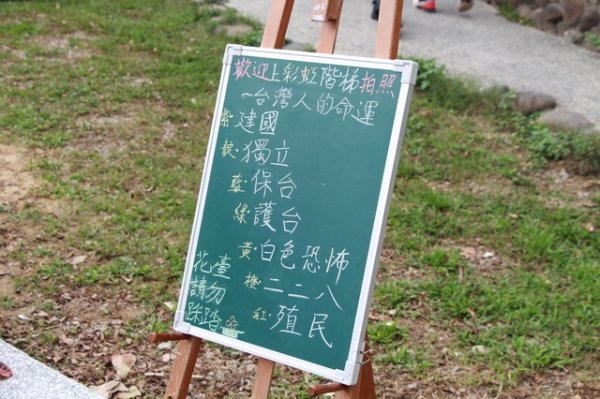 歡迎上彩虹階梯拍照
-台灣人的命運
紫 建國
靛·獨立
藍·保台
綠·護台
黃·白色恐怖
橙·二二八
紅·殖民
花臺
請勿
踩踏